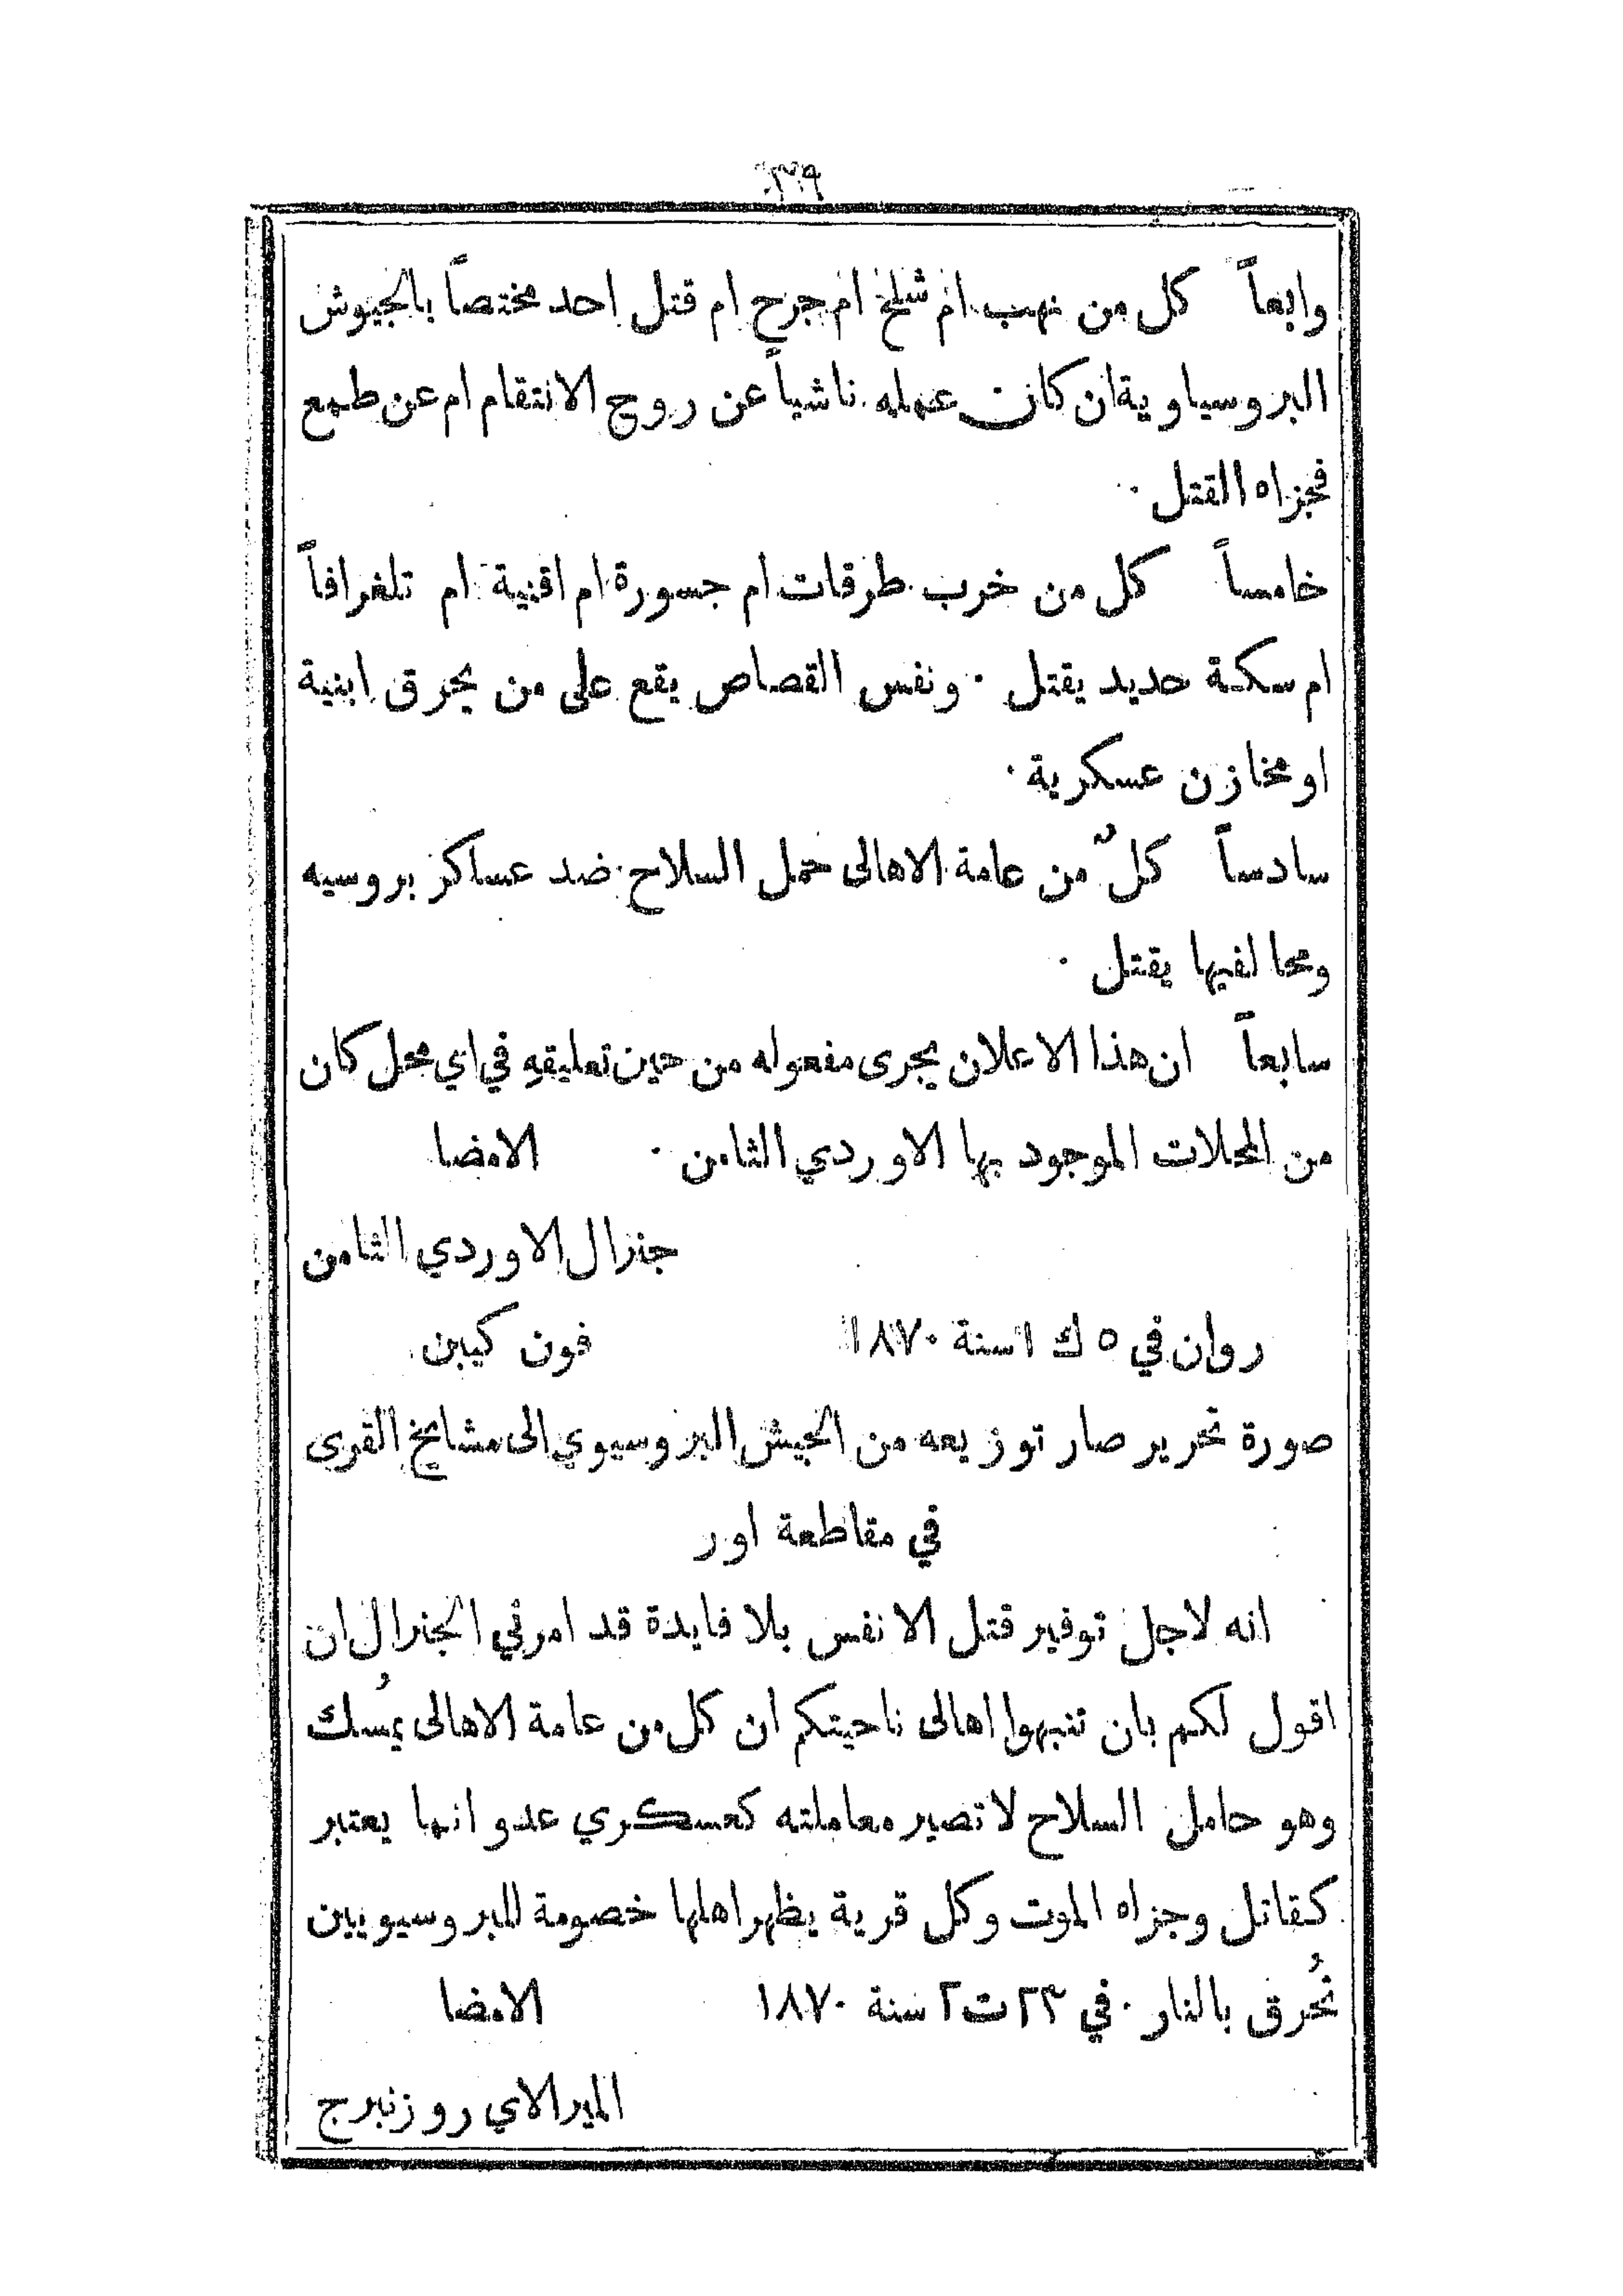 وابعاً كل من نهب ام شلخ ام جرح ام قتل احد مختصاً بالجيوش
البروسياوية ان كان عمله ناشياً عن روح الانتقام ام عن طمع
فجزاه القتل ٠
خامساً كل من خرب طرقات ام جسورة ام اقنية ام تلغرافاً
ام سكة حديد يقتل ٠ ونفس القصاص يقع على من يحرق ابنية
او مخازن عسكرية ٠
سادساً كلٌ من عامة الاهالى حمل السلاح ضد عساكر بروسيه
ومحالفيها يقتل ٠
سابعاً ان هذا الاعلان يجرى مفعوله من حين تعليقهِ في اي محل كان
من المحلات الموجود بها الاوردي الثامن ٠ الامضا
جنرال الاوردي الثامن
روان في ٥ ك ١ سنة ١٨٧٠ فون كيبن
صورة تحرير صار توزيعه من الجيش البروسيوي الى مشايخ القرى
في مقاطعة اور
انه لاجل توفير قتل الانفس بلا فايدة قد امرني الجنرال ان
اقول لكم بان تنبهوا اهالى ناحيتكم ان كل من عامة الاهالى يُمسك
وهو حامل السلاح لا تصير معاملته كعسكري عدو انما يعتبر
كقاتل وجزاه الموت وكل قرية يظهر اهلها خصومة للبروسيويين
تُحرق بالنار ٠ في ٢٣ ت٢ سنة ١٨٧٠ الامضا
الميرالاي روزنبرج